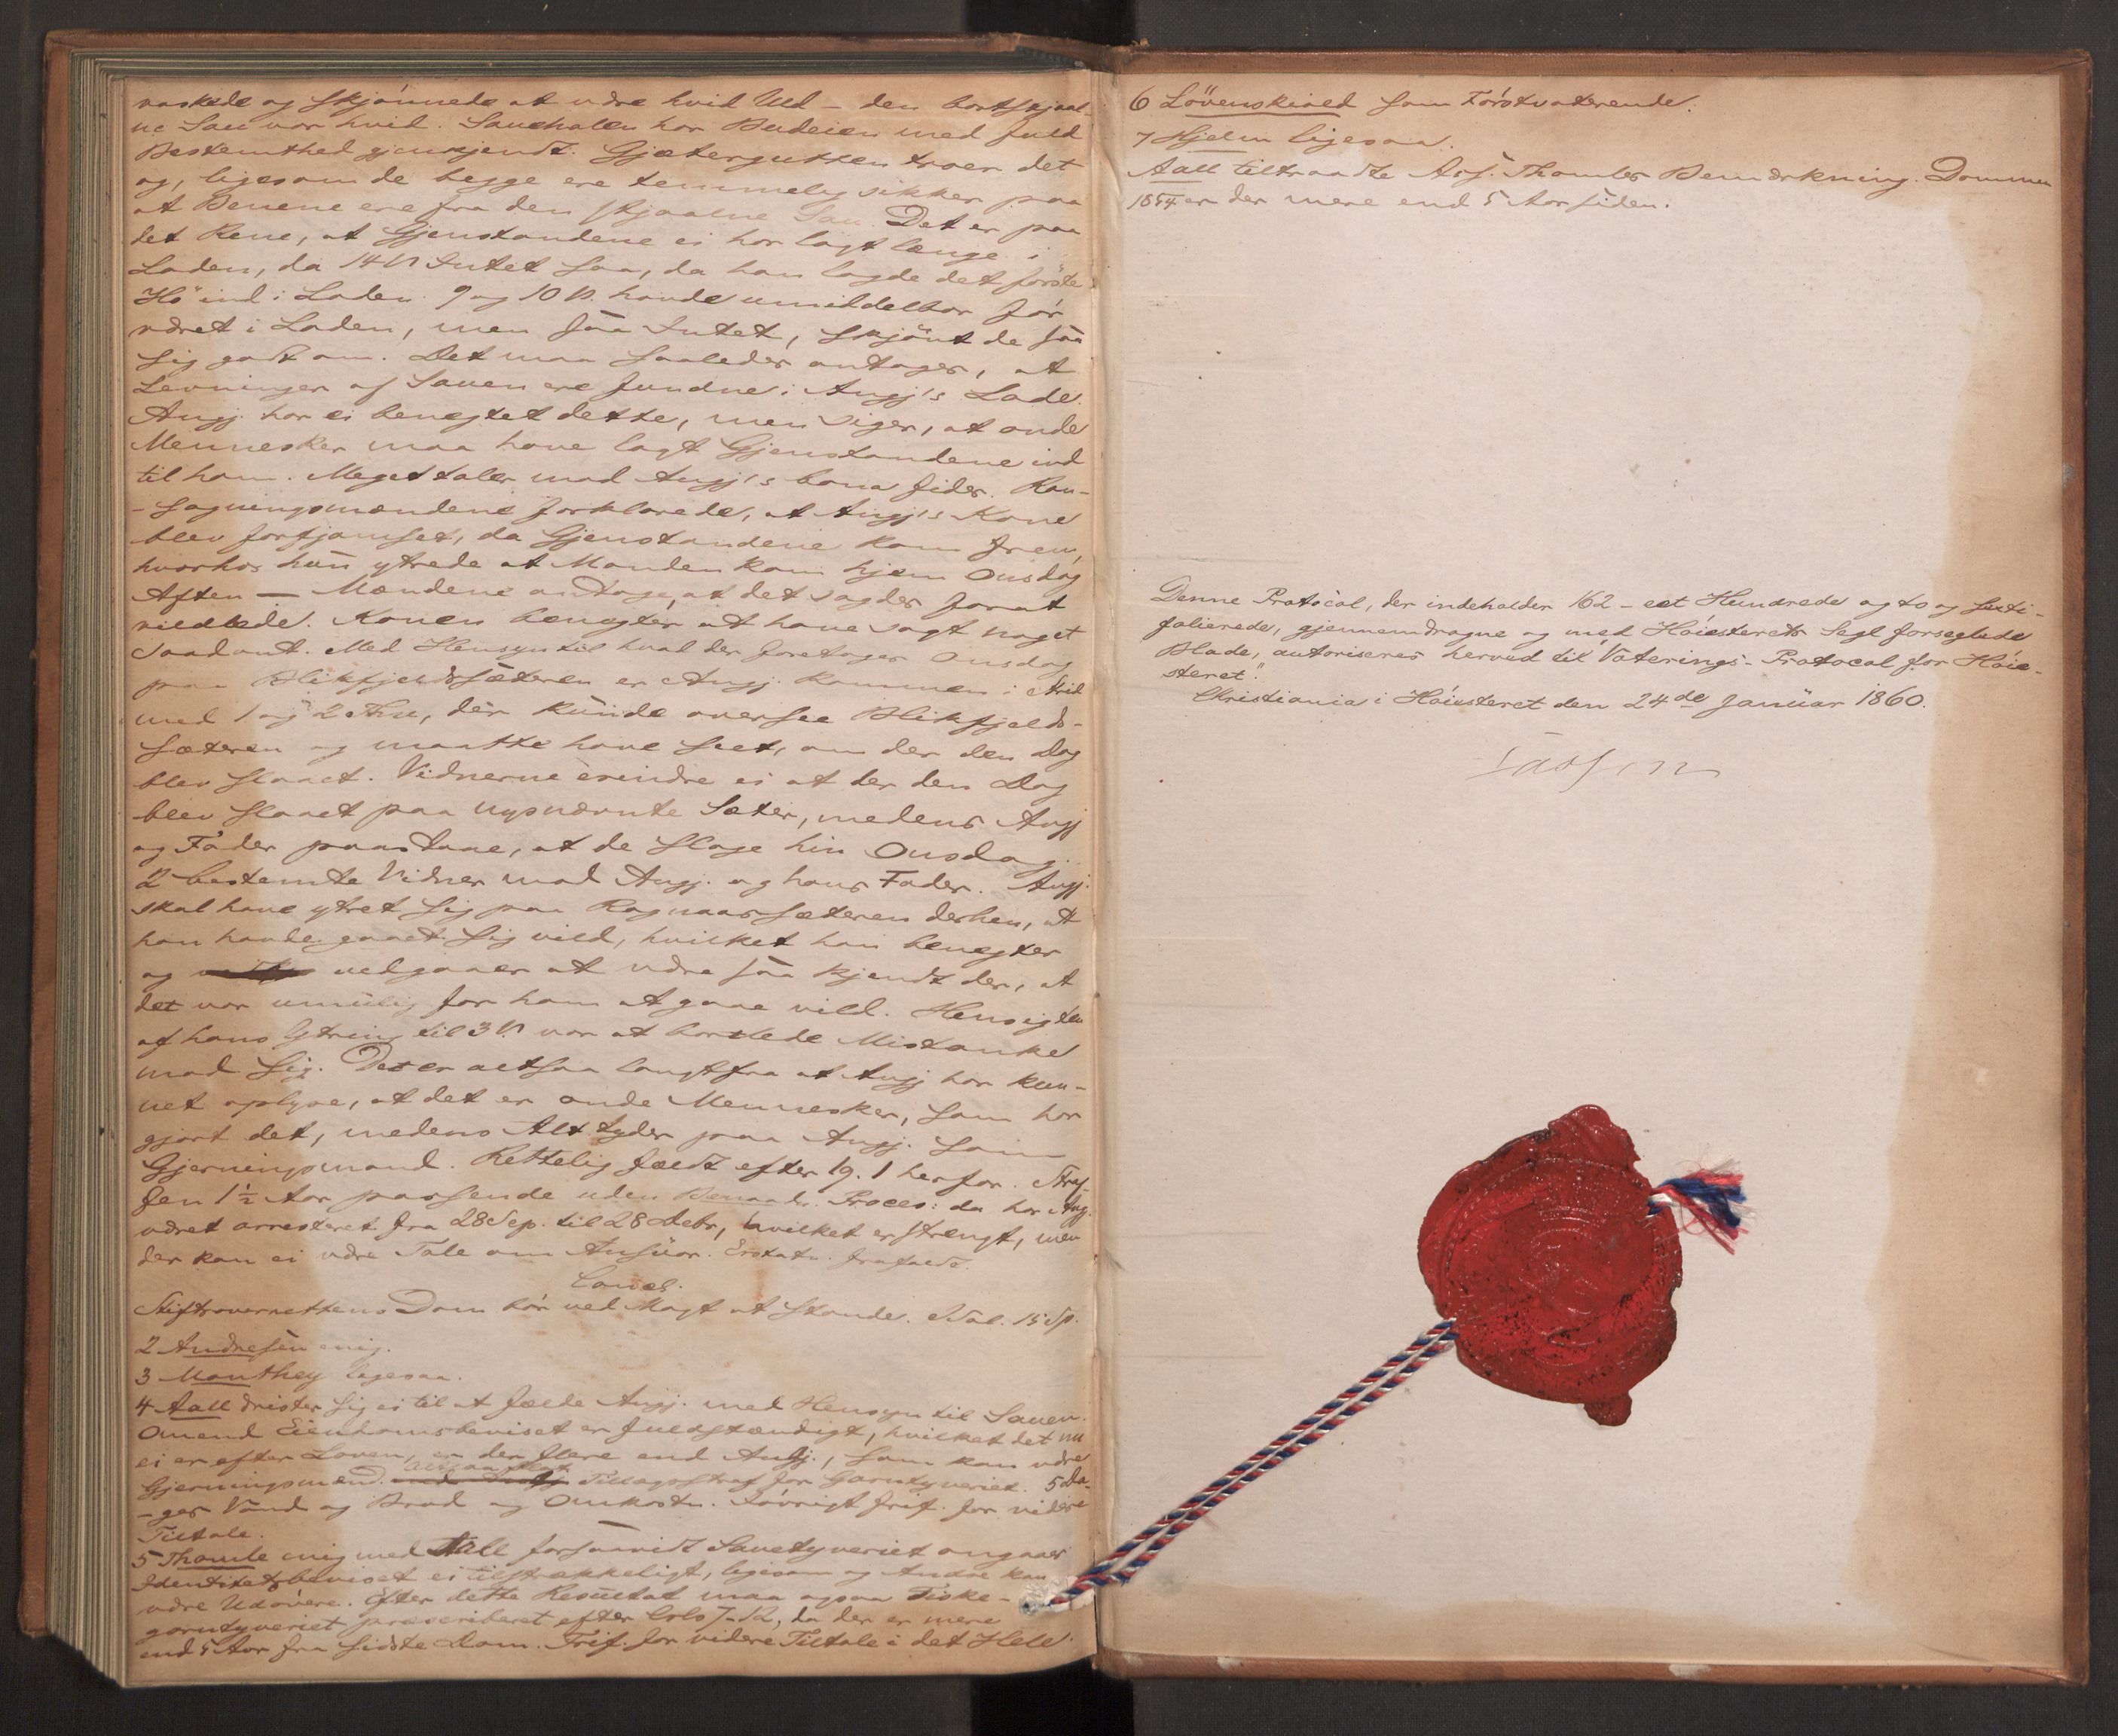 vaskede og skjönnede at være hvid Uld - den bortstjaal-
ne Sau var hvid. Sauehalen har Budeien med fuld
Bestemthed gjenkjendt. Gjætergutten troer det
og, ligesom de begge ere temmelig sikker paa
at Benene ere fra den stjaalne Sau. Det er paa
det Rene, at Gjenstandene ei har lagt længe i
Laden, da 14 V Intet saa, da han lagde det förste
Hö ind i Laden. 9 og 10 V. havde umiddelbar för
været i Laden, men saa Intet, skjönt de saa
sig godt om. Det maa saaledes antages, at
Levninger af Sauen ere fundne i Angj's Lade.
Angj. har ei benegtet dette, men siger, at onde
Mennesker maa have lagt Gjenstandene ind
til ham. Meget taler mod Angj's bona fides. Ran-
- sagningsmændene forklarede, at Angj's Kone
blev forfjamset, da Gjenstandene kom frem,
hvorhos hun ytrede at Manden kom hjem Onsdag
Aften — Mændene antage, at det sagdes for at
vildlede. Konen benegter at have sagt noget
saadant. Med Hensyn til hvad der foretoges Onsdag
paa Blikfjeldsæteren er Angj. kommen i Strid
med 1 og 2 Thu, der kunde oversee Blikfjelds-
sæteren og maatte have seet, om der den Dag
blev slaaet. Vidnerne erindre ei at der den Dag
blev slaaet paa nysnævnte Sæter, medens Angj
og Fader paastaae, at de sloge hin Onsdag.
2 bestemte Vidner mod Angj. og hans Fader. Angj.
skal have ytret sig paa Ragnaassæteren derhen, at
han havde gaaet sig vild, hvilket han benegter
og vedgaaer at være saa kjendt der, at
det var umulig for ham at gaae vild. Hensigten
af hans Ytring til 3 V. var at bortlede Mistanke
mod sig. Det er altsaa langt fra at Angj har kun-
net oplyse, at det er onde Mennesker, som har
gjort det, medens Alt tyder paa Angj. som
Gjerningsmand. Rettelig fældt efter 19. 1 herfor. Straf-
fen 1½ Aar passende uden Proces: da har Ang.
været arresteret fra 28 Sep. til 28 Debr, hvilket er strengt, men
der kan ei være Tale om Ansvar. Erstatn. frafaldt.
Concl.
Stiftsoverrettens Dom bör ved Magt at stande. Sal. 15 Sp.
2 Andresen enig.
3 Manthey ligesaa.
4 Aall drister sig ei til at fælde Angj. med Hensyn til Sauen.
Omend Eiendomsbeviset er fuldstændigt, hvilket det nu
ei er efter Loven, er der flere end Angj., som kan være
Gjerningsmænd. Tillægsstraf for Garntyveriet. 5 Da-
- ges Vand og Bröd og Omkostn. Iövrigt frif. for videre
Tiltale.
5 Thomle enig med Aall forsaavidt Sauetyveriet angaaer
Identitetsbeviset ei tilstrækkeligt, ligesom og Andre kan
være Udövere. Efter dette Resultat maa ogsaa Fiske-
garntyveriet præscriberet efter Crls 7-12, da der er mere
end 5 Aar fra sidste Dom. Frif. for videre Tiltale i det Hele.
6 Lövenskiold som Förstvoterende.
7 Hjelm ligesaa.
Aall tiltraadte Ass. Thomles Bemærkning. Dommen
1854 er der mere end 5 Aar siden.
Denne Protocol, der indeholder 162 - eet Hundrede og to og sexti -
folierede, gjennemdragne og med Höiesterets Segl forseglede
Blade, autoriseres herved til "Voterings-Protocol for Höie-
steret".
Christiania i Höiesteret den 24de Januar 1860.